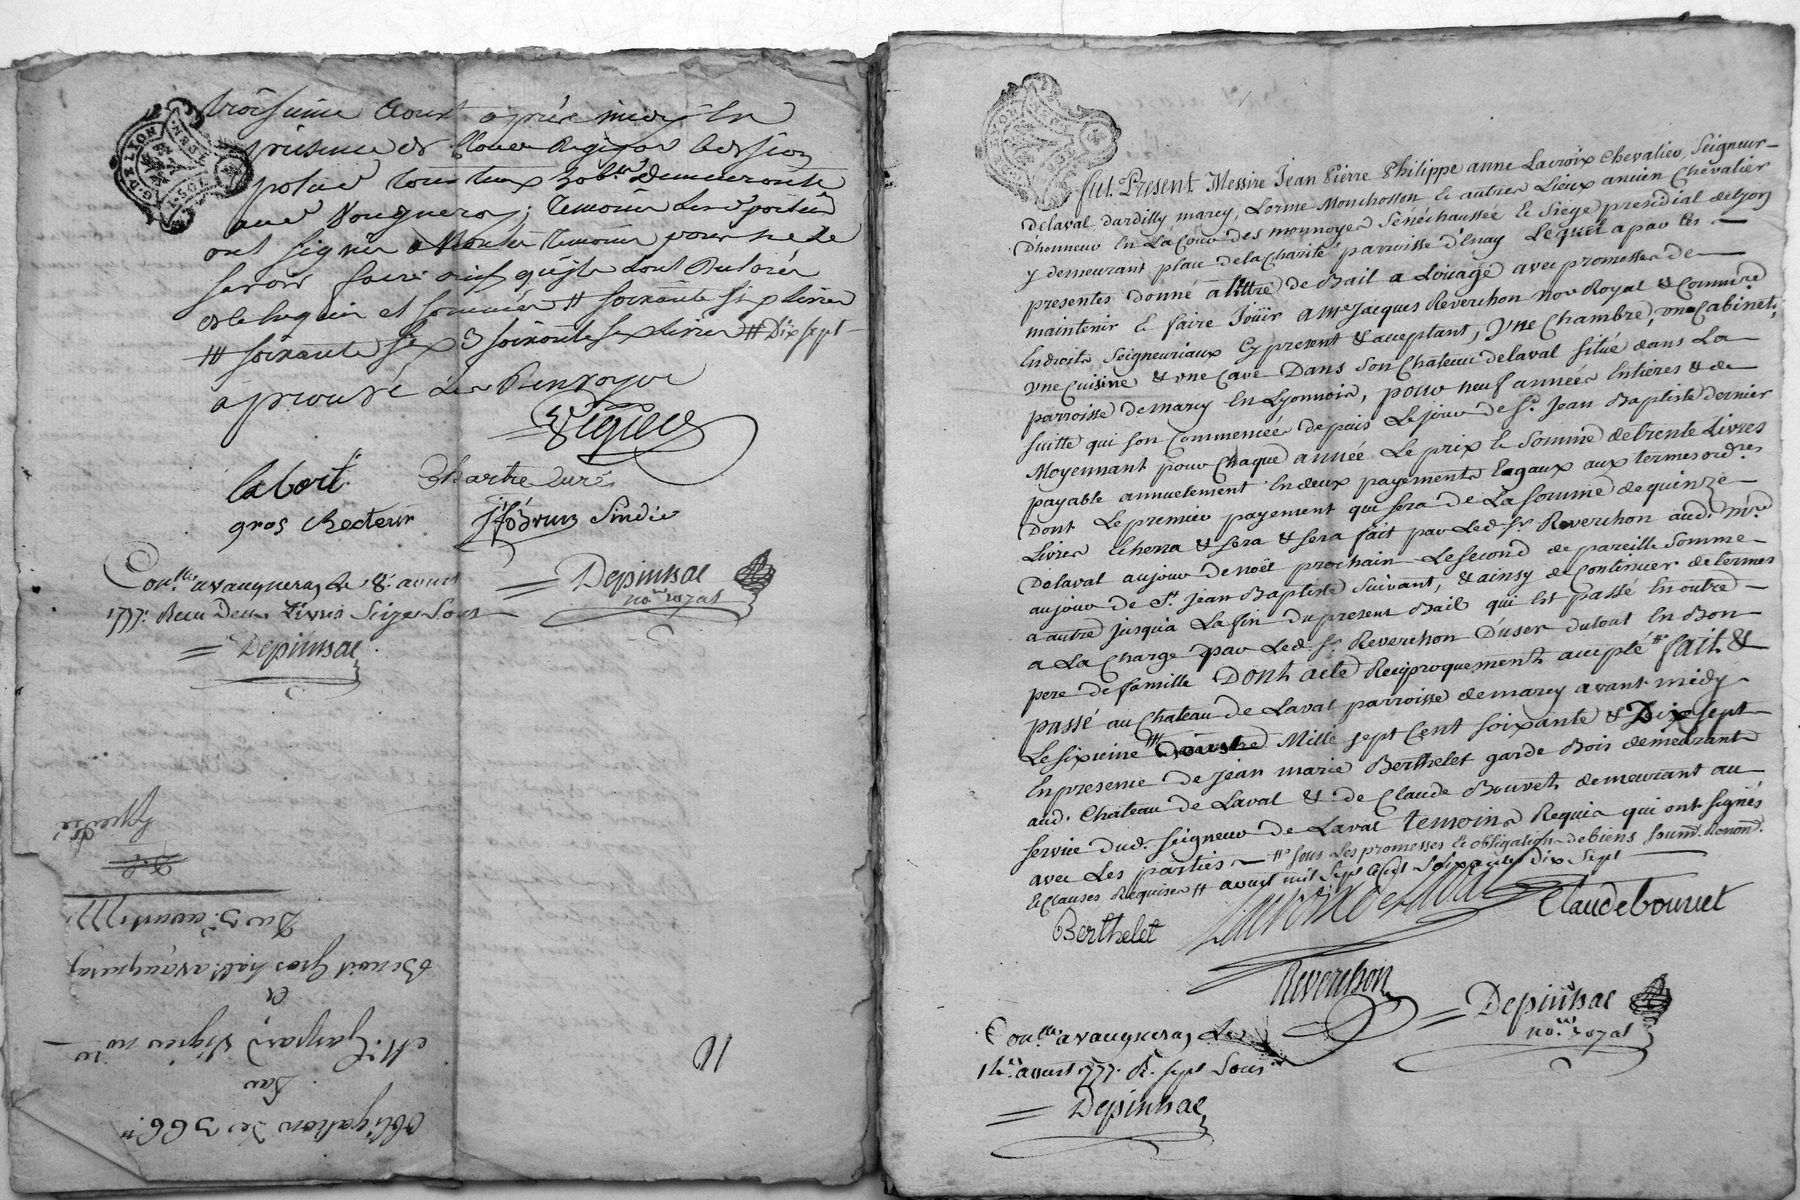 troisieme aoust après midy En
présence de
demeurants
temoins
ont signé temoins pour ne le
savoir faire
et sommés # soixante six livres
# soixante six soixante six livres # Dix sept
aprouvé Les Renvoyés
Vigier
labort Chartre Curé
gros Recteur Brun Sindic
Conllé a vaugneray le 8. aoust
1777. Recu Deux Livres Seize Sous
Depinhac
Depinhac
nore royal
Obligation de 366ll
Par
Me. Gaspard Vigier nore
a
Benoit Gros habt. a vaugneray
Du 3e. aoust 1777.
Expedié
G. DE LYON
fut Present Messire Jean Pierre Philippe anne Lacroix Chevalier, Seigneur
Delaval dardilly marcy, Lorme Monchosson & autres Lieux ancien Chevalier
D'honneur En La Cour des monnoyes Sénéchaussée & Siège presidial de Lyon
y demeurant place de la Charité parroisse d'Enay Lequel a par ces
presentes donné à tittre de Bail a Loüage avec promesse de
maintenir & faire Joüir a Me Jacques Reverchon nore Royal & Commire
En droits Seigneuriaux Cy present & acceptant, Une Chambre, un Cabinet,
une Cuisine & une Cave Dans Son Chateau delaval situé dans La
parroisse de marcy En Lyonnois, pour neuf années Entieres & de
suitte qui son Commencées depuis Le jour de St. Jean Baptiste dernier
Moyennant pour Chaque année Le prix & Somme de trente Livres
payable annuelement En deux payements Egaux aux termes ordres
Dont Le premier payement qui sera de La somme de quinze
Livres Echerra & sera & sera fait par Led. Sr. Reverchon aud. Mre
Delaval aujour de noël prochain Le second de pareille Somme
aujour de St. Jean Baptiste Suivant, & ainsy de Continuer de termes
a autre jusqua La fin du present Bail qui Est passé En outre
a La Charge par Led. Sr. Reverchon D'user du tout En Bon
pere de famille Dont acte Reciproquement accepté # fait &
passé au Chateau de Laval parroisse de marcy avant midy
Le sixieme # Mille sept Cent soixante & Dix sept
En presence de jean marie Berthelet garde Bois demeurant
aud. Chateau de Laval & de Claude Bouvet demeurant au
service dud. seigneur de Laval temoins Requis qui ont signés
avec Les parties # sous Les promesses & obligation de biens soumd. Renond.
& Clauses Requises # aoust mil sept Cent Soixante Dix Sept
Berthelet Lacroix de Laval Claude bouvet
Reverchon
Depinhac
nore royal
Conllé a vaugneray Le
14e. aoust 1777. R. sept Sous
Depinhac